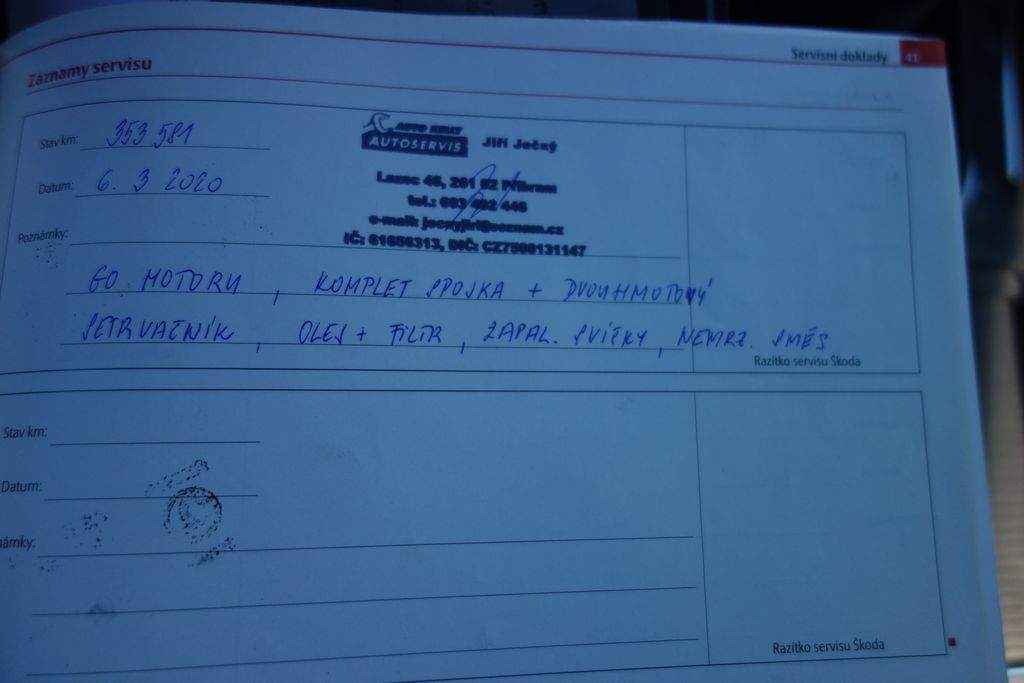 Servisní doklady 41
Záznamy servisu
Stav km: 353 581
AUTOSERVIS Jiří Ječný
Datum: 6. 3 2020
Lazec 46, 261 02 Příbram
tel.: 603 492 446
e-mail: jecnyjiri@seznam.cz
Poznámky:
IČ: 61656313, DIČ: CZ7509131147
GO MOTORU, KOMPLET SPOJKA + DVOUHMOTOVÝ
SETRVAČNÍK, OLEJ + FILTR, ZAPAL. SVÍČKY, NEMRZ. SMĚS
Razítko servisu Škoda
Stav km:
Datum:
námky:
Razítko servisu Škoda